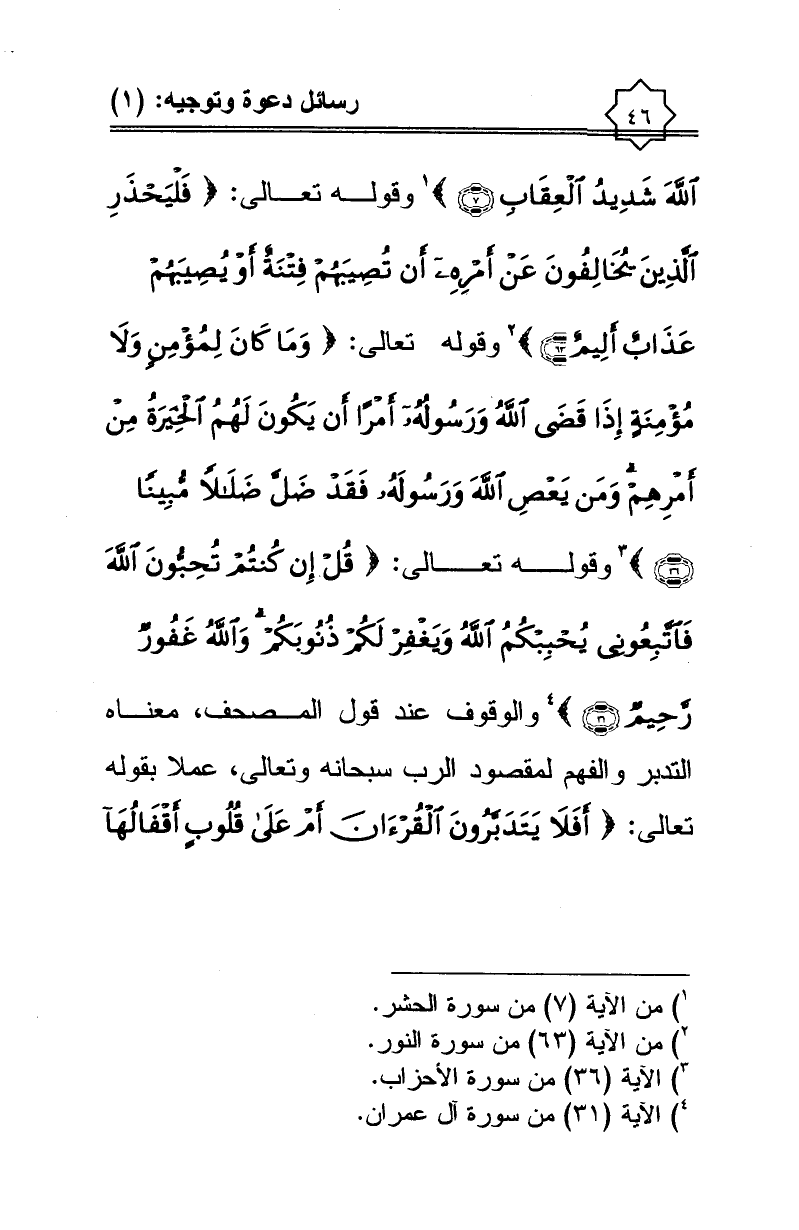 ٤٦
رسائل دعوة وتوجيه: (١)
ٱللَّهَ شَدِيدُ ٱلْعِقَابِ ٧ ﴾١ وقولـه تعـالى: ﴿ فَلْيَحْذَرِ
ٱلَّذِينَ يُخَالِفُونَ عَنْ أَمْرِهِۦٓ أَن تُصِيبَهُمْ فِتْنَةٌ أَوْ يُصِيبَهُمْ
عَذَابٌ أَلِيمٌ ٦٣ ﴾٢ وقوله تعالى: ﴿ وَمَا كَانَ لِمُؤْمِنٍ وَلَا
مُؤْمِنَةٍ إِذَا قَضَى ٱللَّهُ وَرَسُولُهُۥٓ أَمْرًا أَن يَكُونَ لَهُمُ ٱلْخِيَرَةُ مِنْ
أَمْرِهِمْ ۗ وَمَن يَعْصِ ٱللَّهَ وَرَسُولَهُۥ فَقَدْ ضَلَّ ضَلَـٰلًا مُّبِينًا
٣٦ ﴾٣ وقولـه تعـالى: ﴿ قُلْ إِن كُنتُمْ تُحِبُّونَ ٱللَّهَ
فَٱتَّبِعُونِى يُحْبِبْكُمُ ٱللَّهُ وَيَغْفِرْ لَكُمْ ذُنُوبَكُمْ ۗ وَٱللَّهُ غَفُورٌ
رَّحِيمٌ ٣١ ﴾٤ والوقوف عند قول المـصحف، معنـاه
التدبر والفهم لمقصود الرب سبحانه وتعالى، عملا بقوله
تعالى: ﴿ أَفَلَا يَتَدَبَّرُونَ ٱلْقُرْءَانَ أَمْ عَلَىٰ قُلُوبٍ أَقْفَالُهَآ
١) من الآية (٧) من سورة الحشر.
٢) من الآية (٦٣) من سورة النور.
٣) الآية (٣٦) من سورة الأحزاب.
٤) الآية (٣١) من سورة آل عمران.